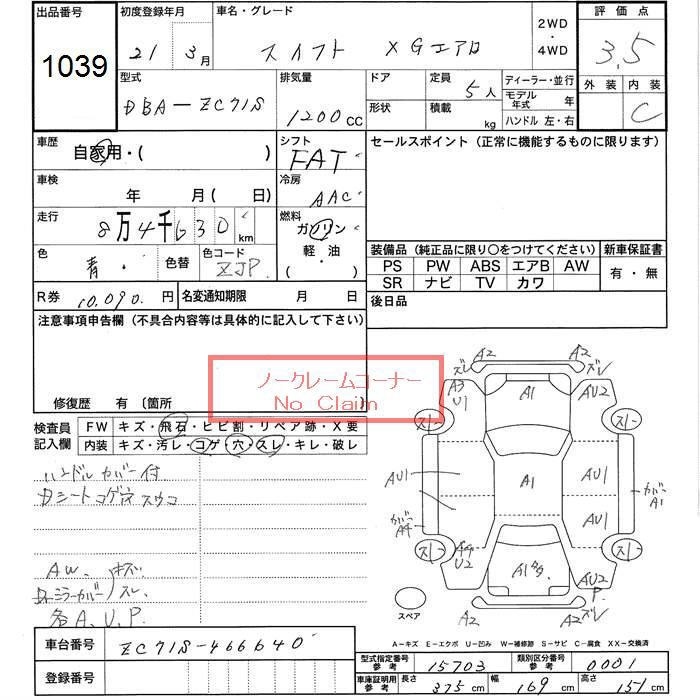 出品番号
1039
初度登録年月
21年 3月
車名・グレード
スイフト XGエアロ
2WD
・
4WD
評価点
3.5
外装 内装
C
型式
DBA-ZC71S
排気量
1200CC
ドア
形状
定員
5人
積載
kg
ディーラー・並行
モデル年式 年
ハンドル 左・右
車歴
自家用・( )
シフト
FAT
セールスポイント (正常に機能するものに限ります)
車検
年 月( 日)
冷房
AAC
走行
8万4千630km
燃料
ガソリン
軽・油
( )
色
青・
色替
色コード
ZJP
装備品 (純正品に限り○をつけてください)
PS PW ABS エアB AW
SR ナビ TV カワ
新車保証書
有・無
R券 10,090円
名変通知期限 月 日
後日品
注意事項申告欄 (不具合内容等は具体的に記入して下さい)
ノークレームコーナー
No Claim
修復歴 有 〔箇所 〕
検査員
記入欄
FW キズ・飛石・ヒビ割・リペア跡・X要
内装 キズ・汚レ・コゲ・穴・スレ・キレ・破レ
ハンドルカバー付
Dシートコゲ穴スウコ
AW、キズ
ミラーカバー スレ
各A、U、P.
A2 A2
ズレ ズレ
A3
U1
A1
AU2
スリ スリ
AU1
A1
AU1
カバー
A1
AU1
カバー
A4
スリ スリ
U2
A1多
AU2
P.
スペア
A2
A2
ズレ
A-キズ E-エクボ U-凹み W-補修跡 S-サビ C-腐食 XX-交換済
車台番号
ZC71S-466640
登録番号
型式指定番号
参考
15703
類別区分番号
参考
0001
車庫証明用
参考
長さ
375cm
幅
169cm
高さ
151cm